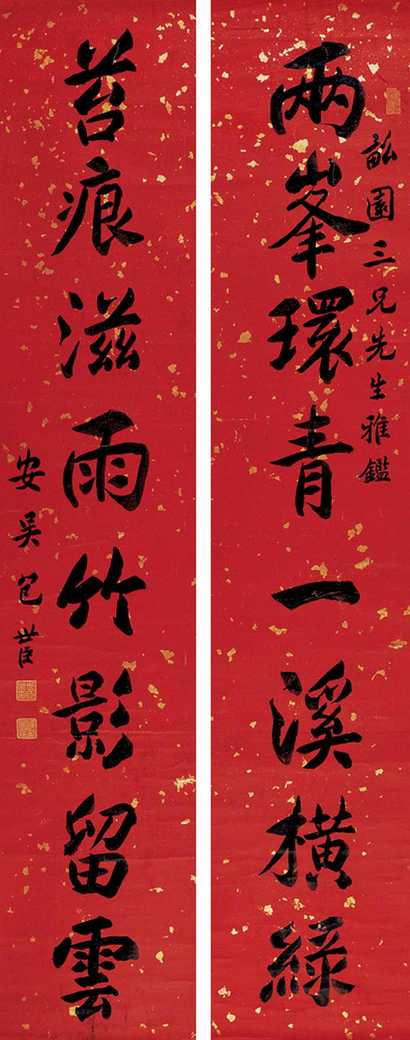 兩峯環青一溪橫綠
畆園三兄先生雅鑑
苔痕滋雨竹影留雲
安吳包世臣